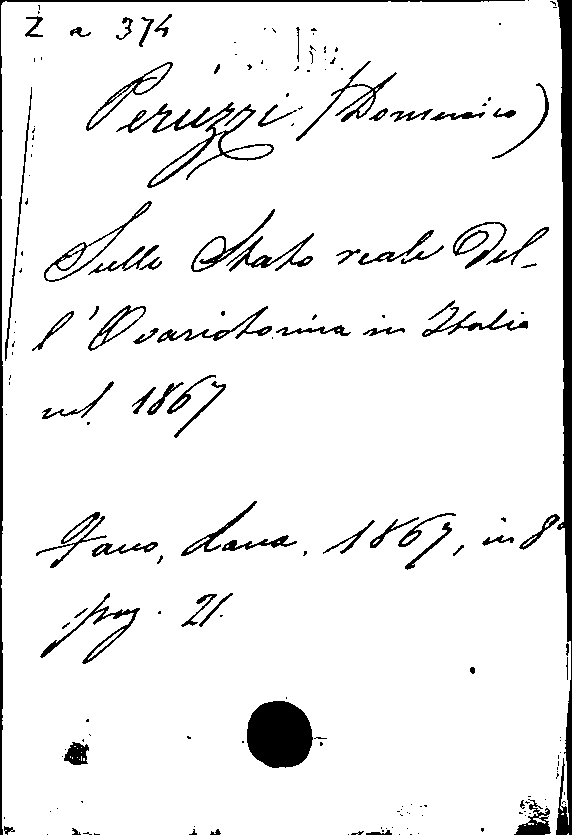 Z a 374
Peruzzi (Domenico)
Sullo Stato reale del-
l'Ovariotomia in Italia
nel 1867
Fano, Lana, 1867, in 8°
pag. 21.